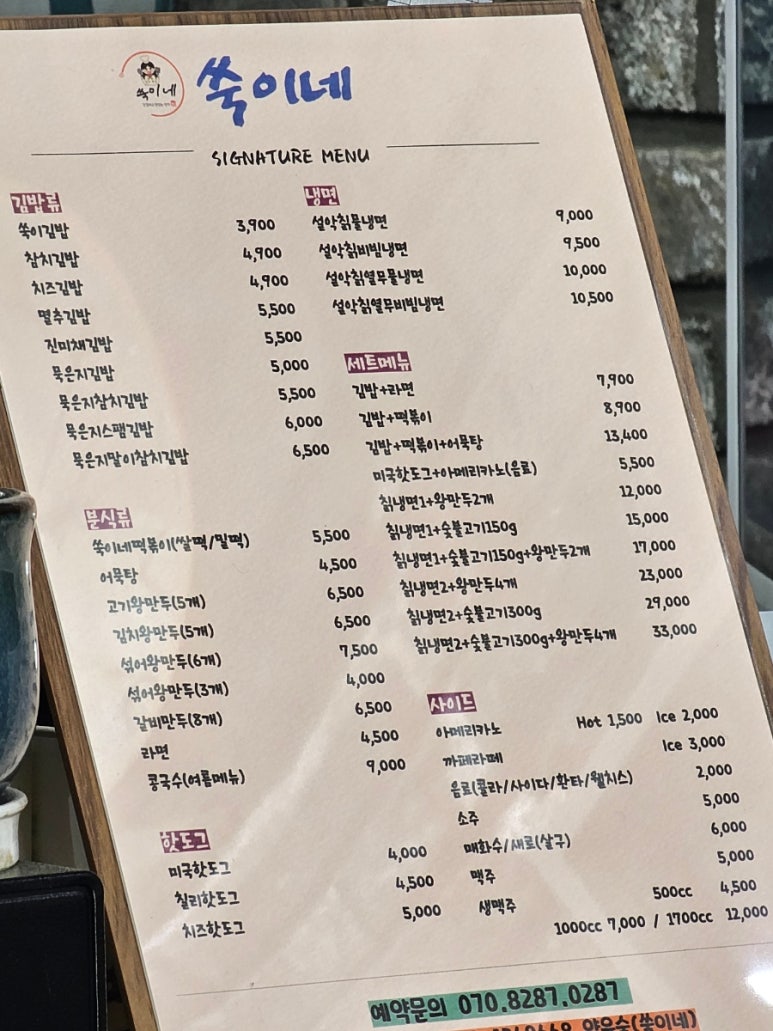 쑥이네
쑥이네
SIGNATURE MENU
김밥류
쑥이김밥 3,900
참치김밥 4,900
치즈김밥 4,900
멸추김밥 5,500
진미채김밥 5,500
묵은지김밥 5,000
묵은지참치김밥 5,500
묵은지스팸김밥 6,000
묵은지말이참치김밥 6,500
분식류
쑥이네떡볶이(쌀떡/밀떡) 5,500
어묵탕 4,500
고기왕만두(5개) 6,500
김치왕만두(5개) 6,500
섞어왕만두(6개) 7,500
섞어왕만두(3개) 4,000
갈비만두(8개) 6,500
라면 4,500
콩국수(여름메뉴) 9,000
핫도그
미국핫도그 4,000
칠리핫도그 4,500
치즈핫도그 5,000
냉면
설악칡물냉면 9,000
설악칡비빔냉면 9,500
설악칡열무물냉면 10,000
설악칡열무비빔냉면 10,500
세트메뉴
김밥+라면 7,900
김밥+떡볶이 8,900
김밥+떡볶이+어묵탕 13,400
미국핫도그+아메리카노(음료) 5,500
칡냉면1+왕만두2개 12,000
칡냉면1+숯불고기150g 15,000
칡냉면1+숯불고기150g+왕만두2개 17,000
칡냉면2+왕만두4개 23,000
칡냉면2+숯불고기300g 29,000
칡냉면2+숯불고기300g+왕만두4개 33,000
사이드
아메리카노 Hot 1,500 Ice 2,000
까페라떼 Ice 3,000
음료(콜라/사이다/환타/웰치스) 2,000
소주 5,000
매화수/새로(살구) 6,000
맥주 5,000
생맥주 500cc 4,500
1000cc 7,000 / 1700cc 12,000
예약문의 070.8287.0287
(쑥이네)